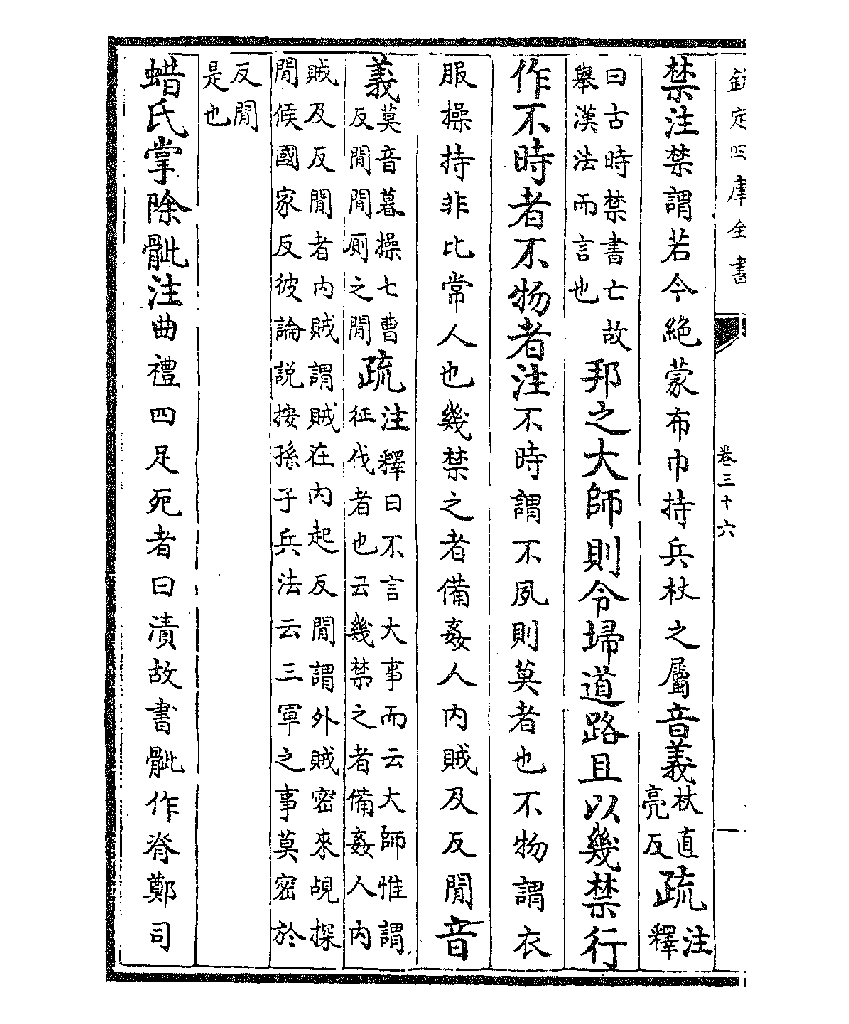 欽定四庫全書
卷三十六
禁注禁謂若今絶蒙布巾持兵杖之屬音義杖直亮反疏注釋
曰古時禁書亡故舉漢法而言也邦之大師則令埽道路且以幾禁行
作不時者不物者注不時謂不夙則莫者也不物謂衣
服操持非比常人也幾禁之者備姦人内賊及反閒音
義莫音暮操七曹反閒閒厠之閒疏注釋曰不言大事而云大師惟謂征伐者也云幾禁之者備姦人内
賊及反閒者内賊謂賊在内起反閒謂外賊密來覘探閒候國家反彼論説按孫子兵法云三軍之事莫密於
反閒是也
蜡氏掌除骴注曲禮四足死者曰漬故書骴作脊鄭司